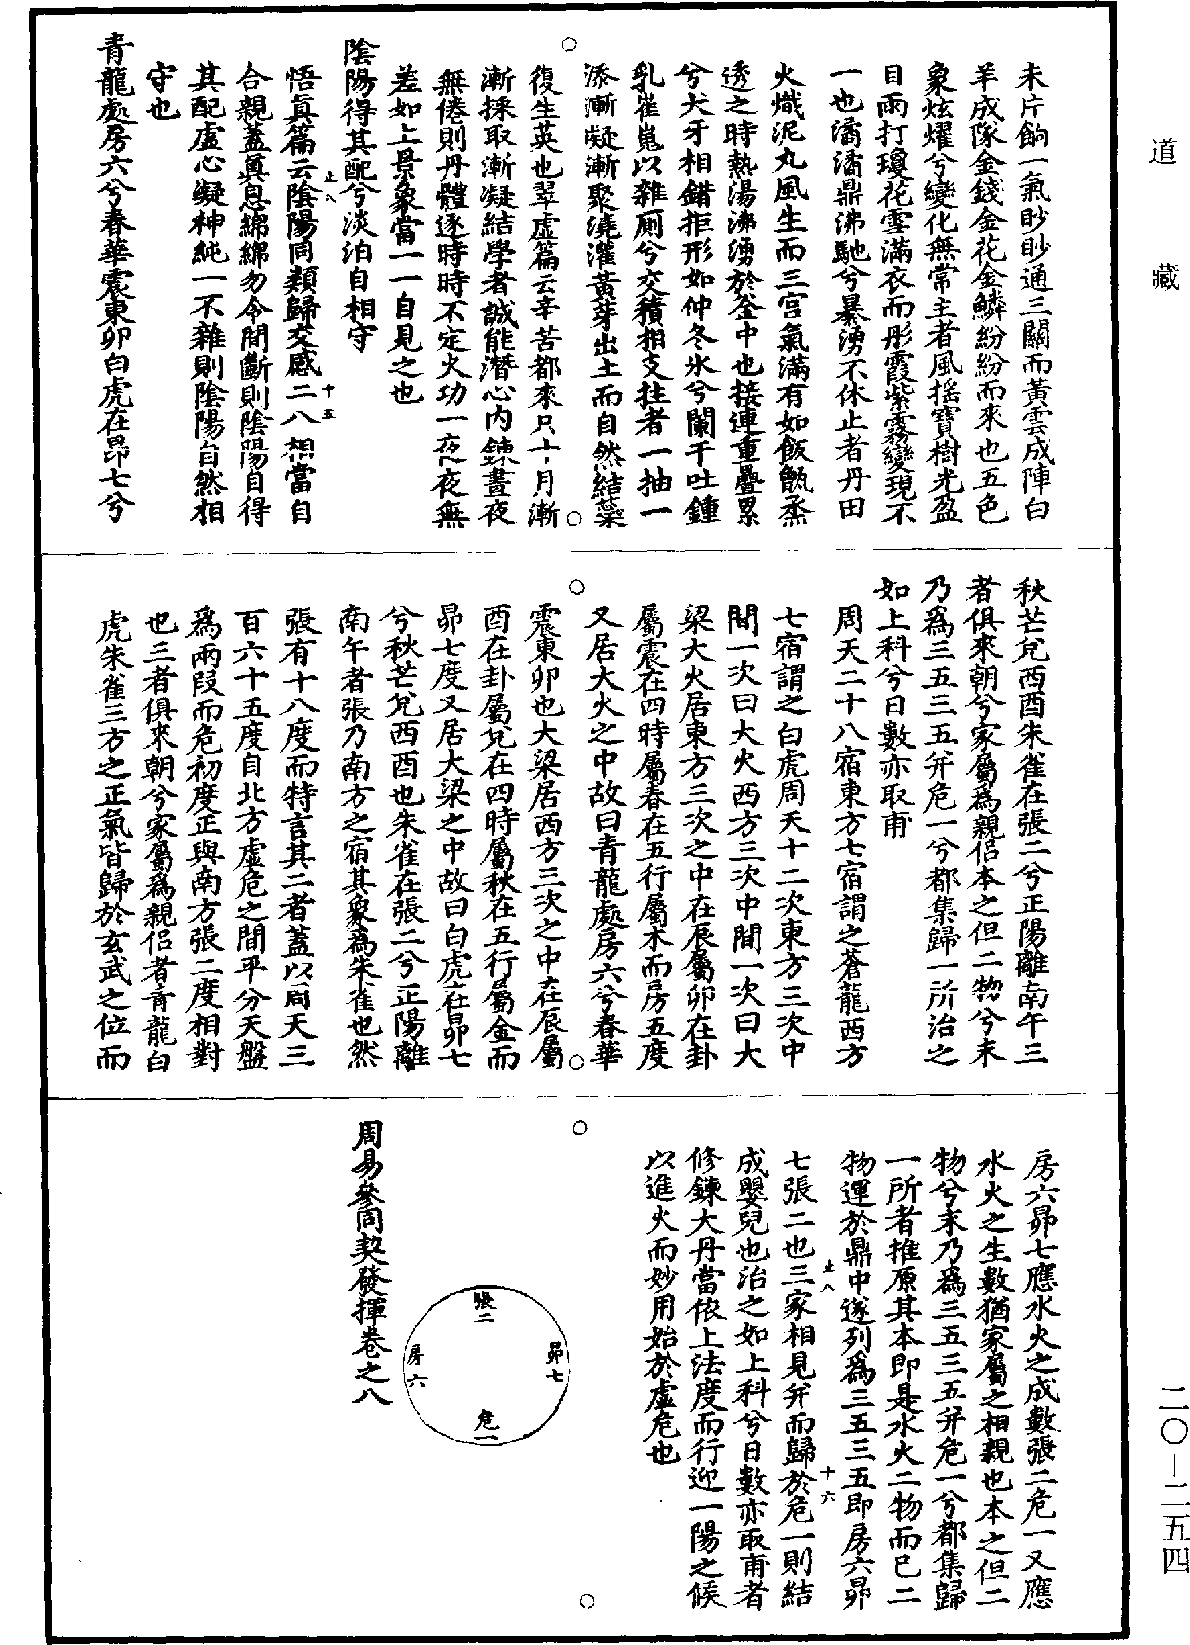 道藏
未片餉一氣眇眇通三關而黃雲成陣白
羊成隊金錢金花金鱗紛紛而來也五色
象炫燿兮變化無常主者風搖寶樹光盈
目雨打瓊花雪滿衣而彤霞紫霧變現不
一也潏潏鼎沸馳兮暴湧不休止者丹田
火熾泥丸風生而三宮氣滿有如飯甑烝
透之時熱湯沸湧於釜中也接連重疊累
兮犬牙相錯拒形如仲冬氷兮闌干吐鍾
乳崔嵬以雜厠兮交積相支拄者一抽一
添漸凝漸聚澆灌黃芽出土而自然結蘂
復生英也翠虛篇云辛苦都來只十月漸
漸採取漸凝結學者誠能潛心內鍊晝夜
無倦則丹體逐時時不定火功一夜夜無
差如上景象當一一自見之也
陰陽得其配兮淡泊自相守
悟眞篇云陰陽同類歸交感二八相當自
合親蓋眞息綿綿勿令間斷則陰陽自得
其配虛心凝神純一不雜則陰陽自然相
守也
青龍處房六兮春華震東卯白虎在昴七兮
止八
十五
秋芒兌西酉朱雀在張二兮正陽離南午三
者俱來朝兮家屬爲親侶本之但二物兮末
乃爲三五三五并危一兮都集歸一所治之
如上科兮日數亦取甫
周天二十八宿東方七宿謂之蒼龍西方
七宿謂之白虎周天十二次東方三次中
間一次曰大火西方三次中間一次曰大
梁大火居東方三次之中在辰屬卯在卦
屬震在四時屬春在五行屬木而房五度
又居大火之中故曰青龍處房六兮春華
震東卯也大梁居西方三次之中在辰屬
酉在卦屬兌在四時屬秋在五行屬金而
昴七度又居大梁之中故曰白虎在昴七
兮秋芒兌西酉也朱雀在張二兮正陽離
南午者張乃南方之宿其象爲朱雀也然
張有十八度而特言其二者蓋以周天三
百六十五度自北方虛危之間平分天盤
爲兩段而危初度正與南方張二度相對
也三者俱來朝兮家屬爲親侶者青龍白
虎朱雀三方之正氣皆歸於玄武之位而
房六昴七應水火之成數張二危一又應
水火之生數猶家屬之相親也本之但二
物兮末乃爲三五三五并危一兮都集歸
一所者推原其本即是水火二物而已二
物運於鼎中遂列爲三五三五即房六昴
七張二也三家相見并而歸於危一則結
成嬰兒也治之如上科兮日數亦取甫者
修鍊大丹當依上法度而行迎一陽之候
以進火而妙用始於虛危也
止八
十六
張二
昴七
房六
危一
周易參同契發揮卷之八
二〇—二五四